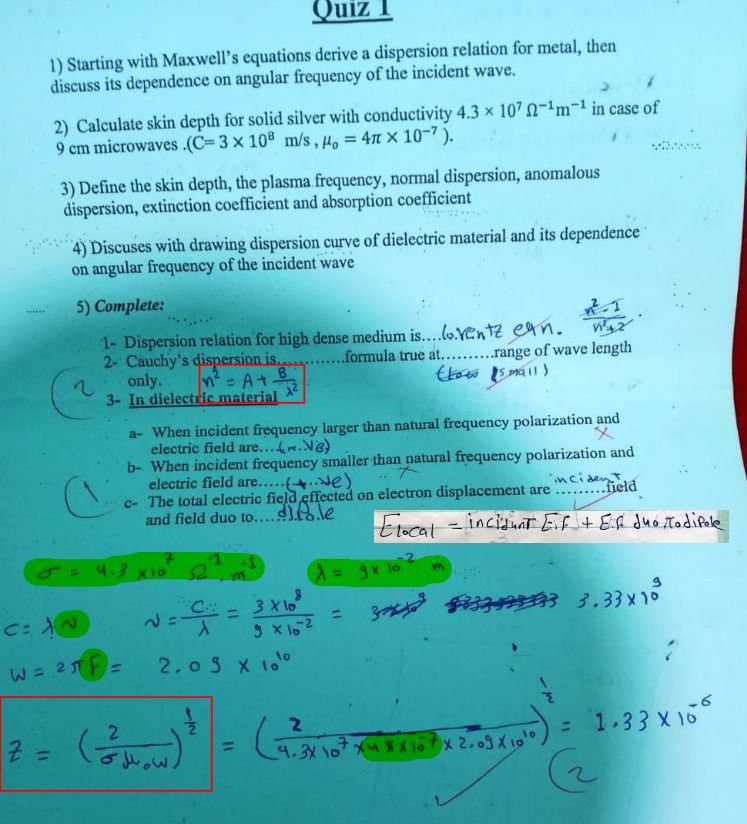 Quiz 1
1) Starting with Maxwell's equations derive a dispersion relation for metal, then
discuss its dependence on angular frequency of the incident wave.
2) Calculate skin depth for solid silver with conductivity 4.3 × 10⁷ Ω⁻¹m⁻¹ in case of
9 cm microwaves .(C= 3 × 10⁸ m/s , μₒ = 4π × 10⁻⁷ ).
3) Define the skin depth, the plasma frequency, normal dispersion, anomalous
dispersion, extinction coefficient and absorption coefficient
4) Discuses with drawing dispersion curve of dielectric material and its dependence
on angular frequency of the incident wave
5) Complete:
1- Dispersion relation for high dense medium is....lorentz eqn. n²-1/n²+2
2- Cauchy's dispersion is..............formula true at..........range of wave length
only. n² = A + B/λ² (small)
3- In dielectric material
2
a- When incident frequency larger than natural frequency polarization and
electric field are....(-.ve)
b- When incident frequency smaller than natural frequency polarization and
electric field are.....(+.ve)
1
c- The total electric field effected on electron displacement are incident..........field
and field duo to.....dipole
E local = incidunt E.F + E.F. duo to dipole
σ = 4.3 × 10⁷ Ω⁻¹ . m⁻¹ λ = 9 × 10⁻² m
C = λν ν = C/λ = 3 × 10⁸ / 9 × 10⁻² = 3.33 × 10⁹
W = 2πF = 2.09 × 10¹⁰
Z = (2/σμₒw)^½ = (2/4.3 × 10⁷ × 4π × 10⁻⁷ × 2.09 × 10¹⁰)^½ = 1.33 × 10⁻⁶
2